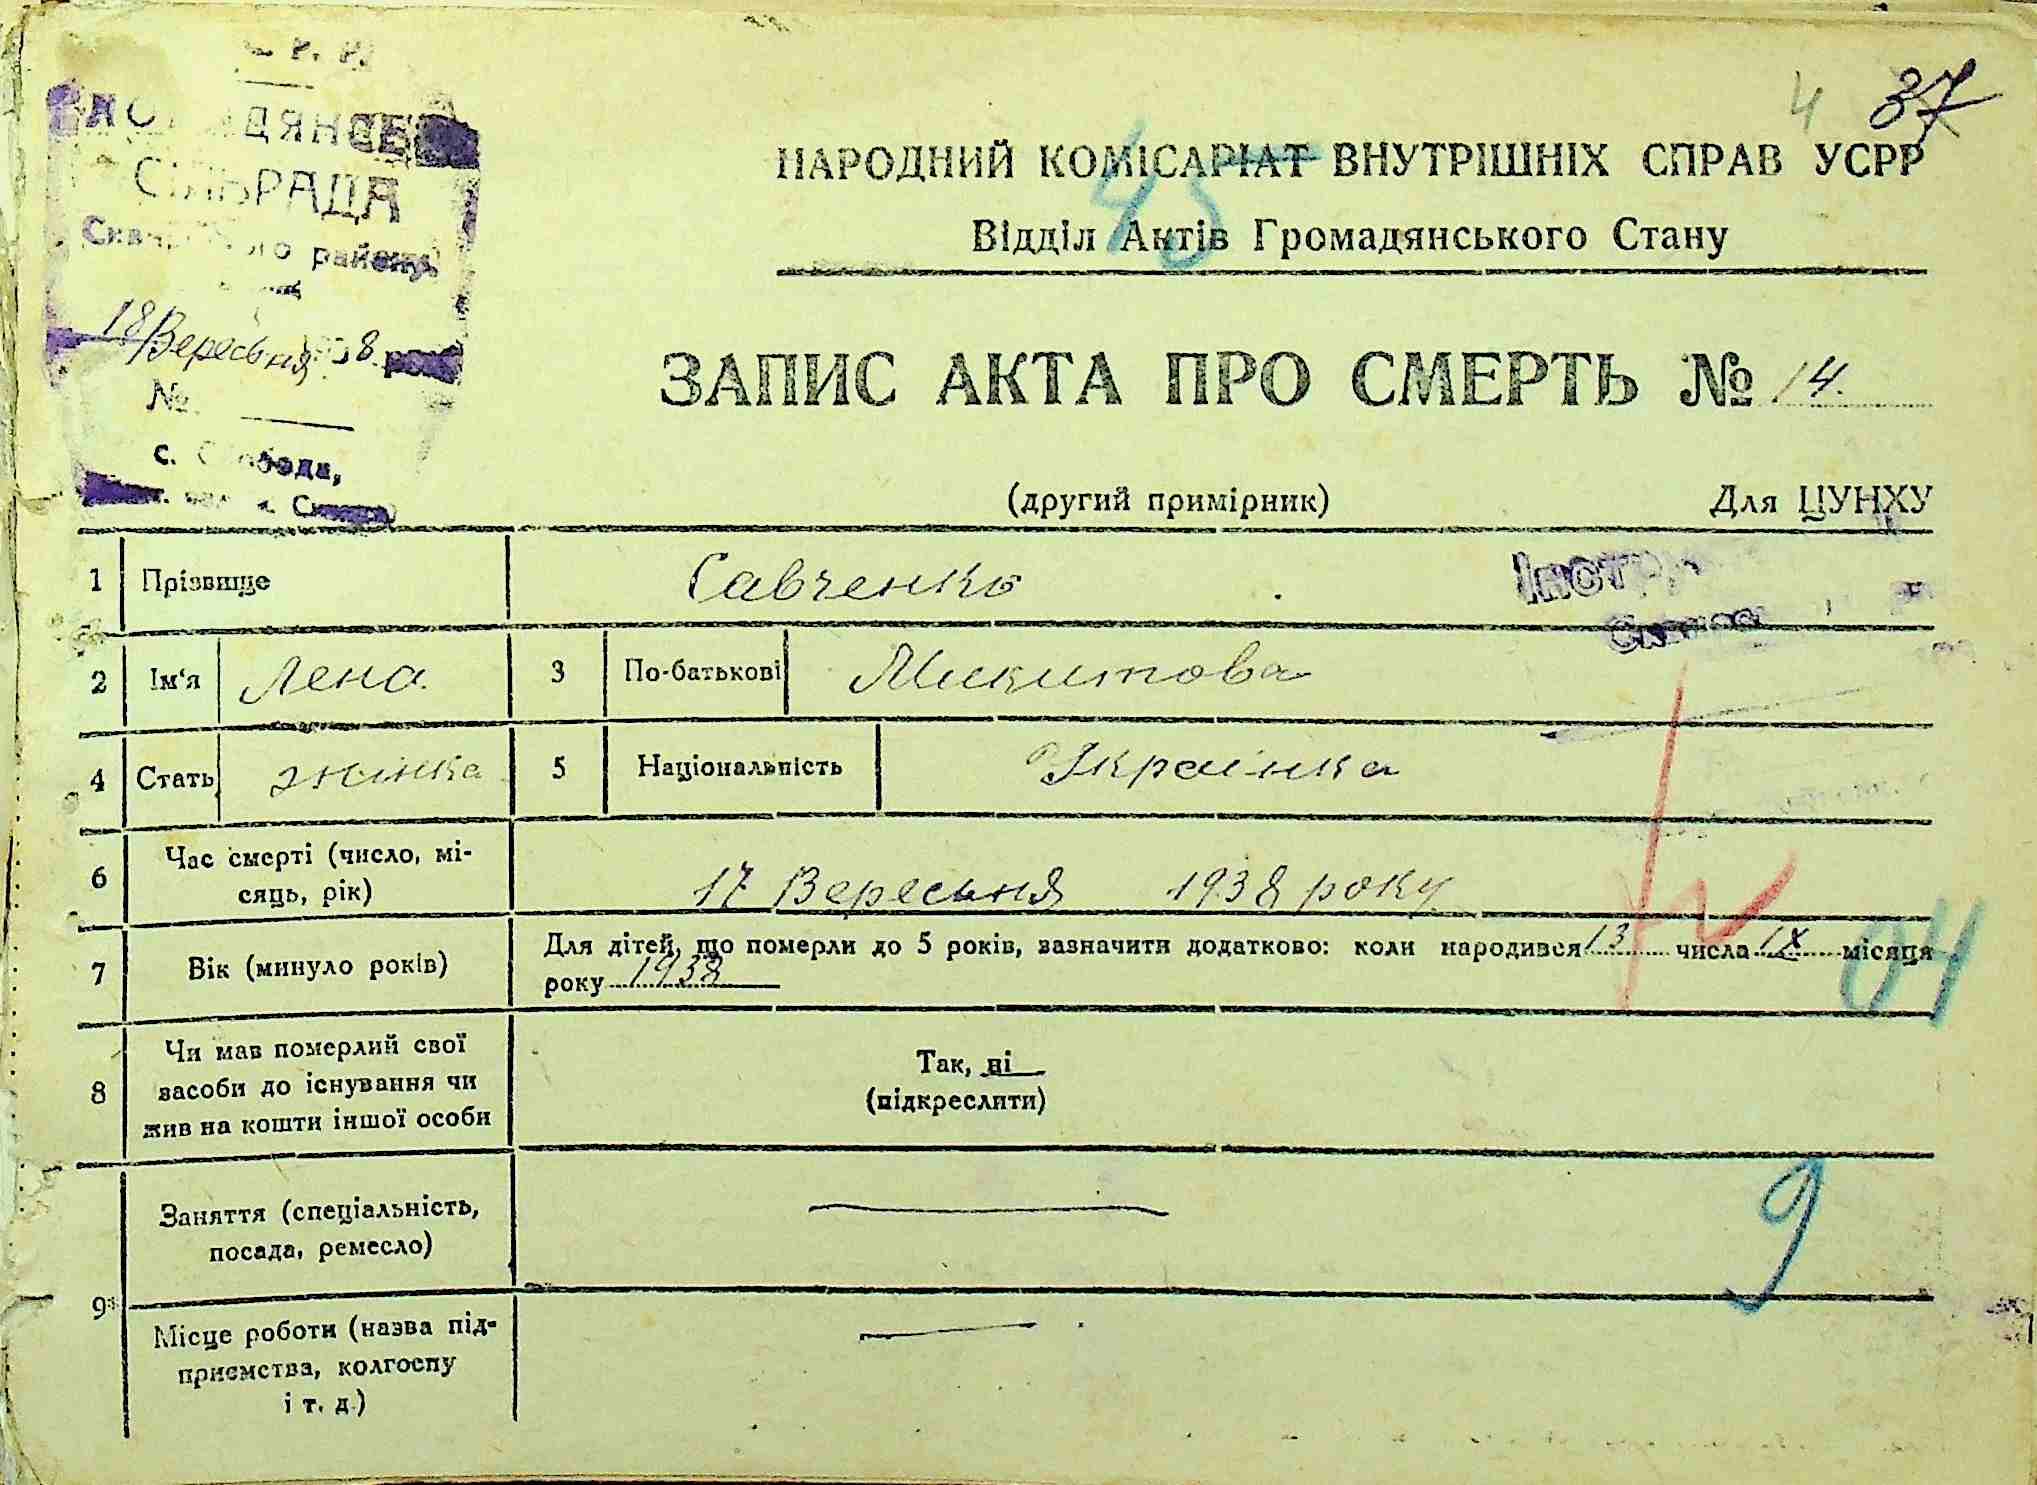 Р. Р.
СІЛЬРАДА
району,
18 Вересьня 1938 року
№
с. Слобода,
4 37
45
НАРОДНИЙ КОМІСАРІАТ ВНУТРІШНІХ СПРАВ УСРР
Відділ Актів Громадянського Стану
ЗАПИС АКТА ПРО СМЕРТЬ № 14.
(другий примірник) Для ЦУНХУ
1 Прізвище Савченко
2 Ім'я Лена 3 По-батькові Микитова
4 Стать жінка 5 Національність Українка
6 Час смерті (число, мі-
сяць, рік) 17 Вересьня 1938 року
7 Вік (минуло років) Для дітей, що померли до 5 років, зазначити додатково: коли народився 13 числа IX місяця
року 1938
04
8 Чи мав померлий свої
засоби до існування чи
жив на кошти іншої особи
Так, ні
(підкреслити)
9
Заняття (спеціальність,
посада, ремесло)
9
Місце роботи (назва під-
приємства, колгоспу
і т. д.)